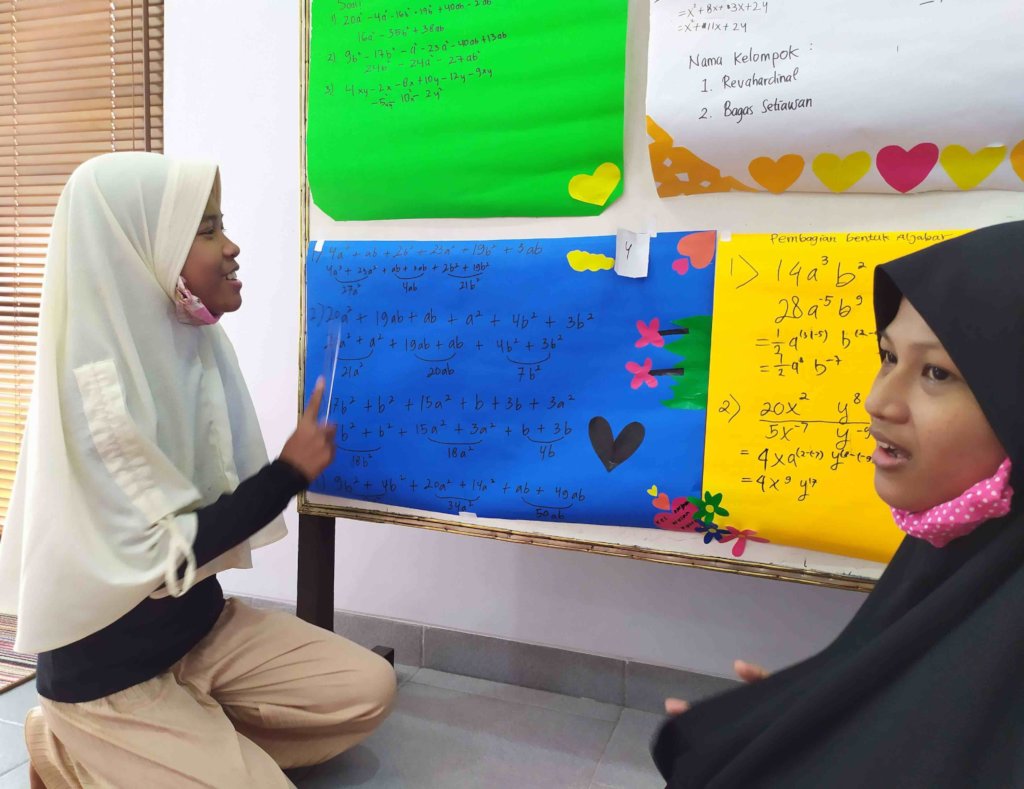 Soal
1) 20a² - 4a² - 16b² - 19b² + 40ab - 2ab
16a² - 35b² + 38ab
2) 9b² - 17b² - a² - 23a² - 40ab + 13ab
24b² - 24a² - 27ab²
3) 4xy - 2x - 8x + 10y - 12y - 9xy
= x² + 8x + 3x + 2y
= x² + 11x + 2y
Nama Kelompok :
1. Revahardinal
2. Bagas Setiawan
1) 4a² + ab + 2b² + 23a² + 19b² + 3ab
4a² + 23a² + ab + 3ab + 2b² + 19b²
27a² 4ab 21b²
2) 20a² + 19ab + ab + a² + 4b² + 3b²
a² + a² + 19ab + ab + 4b² + 3b²
21a² 20ab 7b²
7b² + b² + 15a² + b + 3b + 3a²
b² + b² + 15a² + 3a² + b + 3b
18b² 18a² 4b
9b² + 4b² + 20a² + 14a² + ab + 49ab
34a² 50ab
4
Pembagian bentuk Aljabar
1) 14a³ b²
28a⁻⁵ b⁹
= 1/2 a⁽³⁽⁻⁵⁾ b⁽²⁻
= 1/2 a⁸ b⁻⁷
2) 20x² y⁸
5x⁻⁷ y⁻⁹
= 4xa⁽²⁻⁽⁻⁷⁾ y⁽⁸⁻⁽⁻⁹
= 4x⁹ y¹⁷